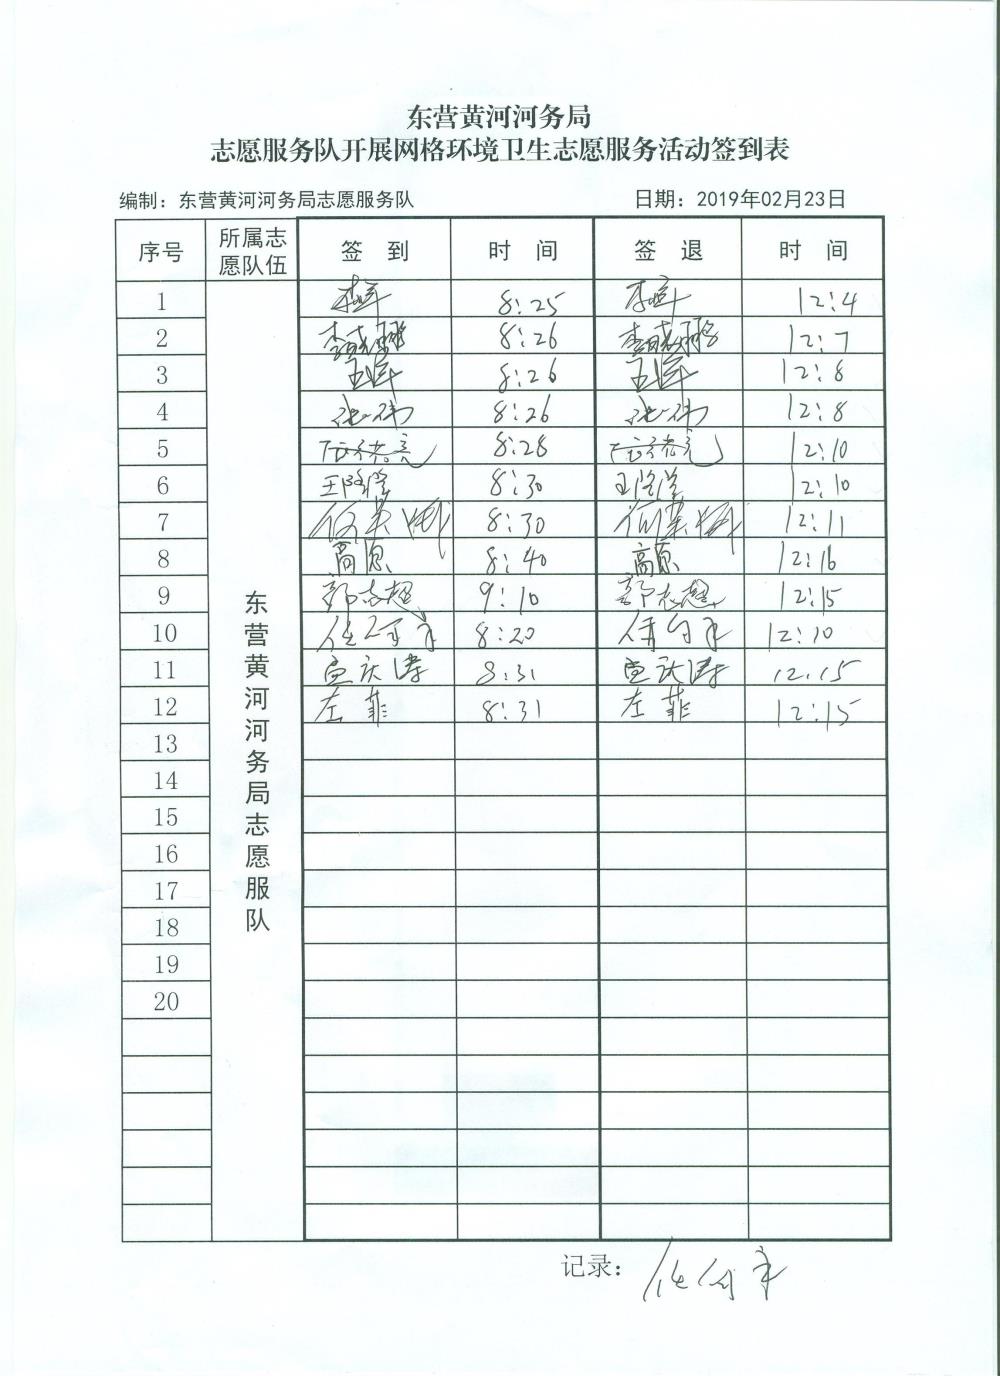 东营黄河河务局
志愿服务队开展网格环境卫生志愿服务活动签到表
编制：东营黄河河务局志愿服务队 日期：2019年02月23日
序号 所属志愿队伍 签 到 时 间 签 退 时 间
东营黄河河务局志愿服务队
1 8:25 12:4
2 李成鹏 8:26 李成鹏 12:7
3 王军 8:26 王军 12:8
4 张伟 8:26 张伟 12:8
5 8:28 12:10
6 8:30 12:10
7 8:30 12:11
8 高原 8:40 高原 12:16
9 郭志超 9:10 郭志超 12:15
10 8:20 12:10
11 孟庆涛 8:31 孟庆涛 12:15
12 左菲 8:31 左菲 12:15
13
14
15
16
17
18
19
20
记录：